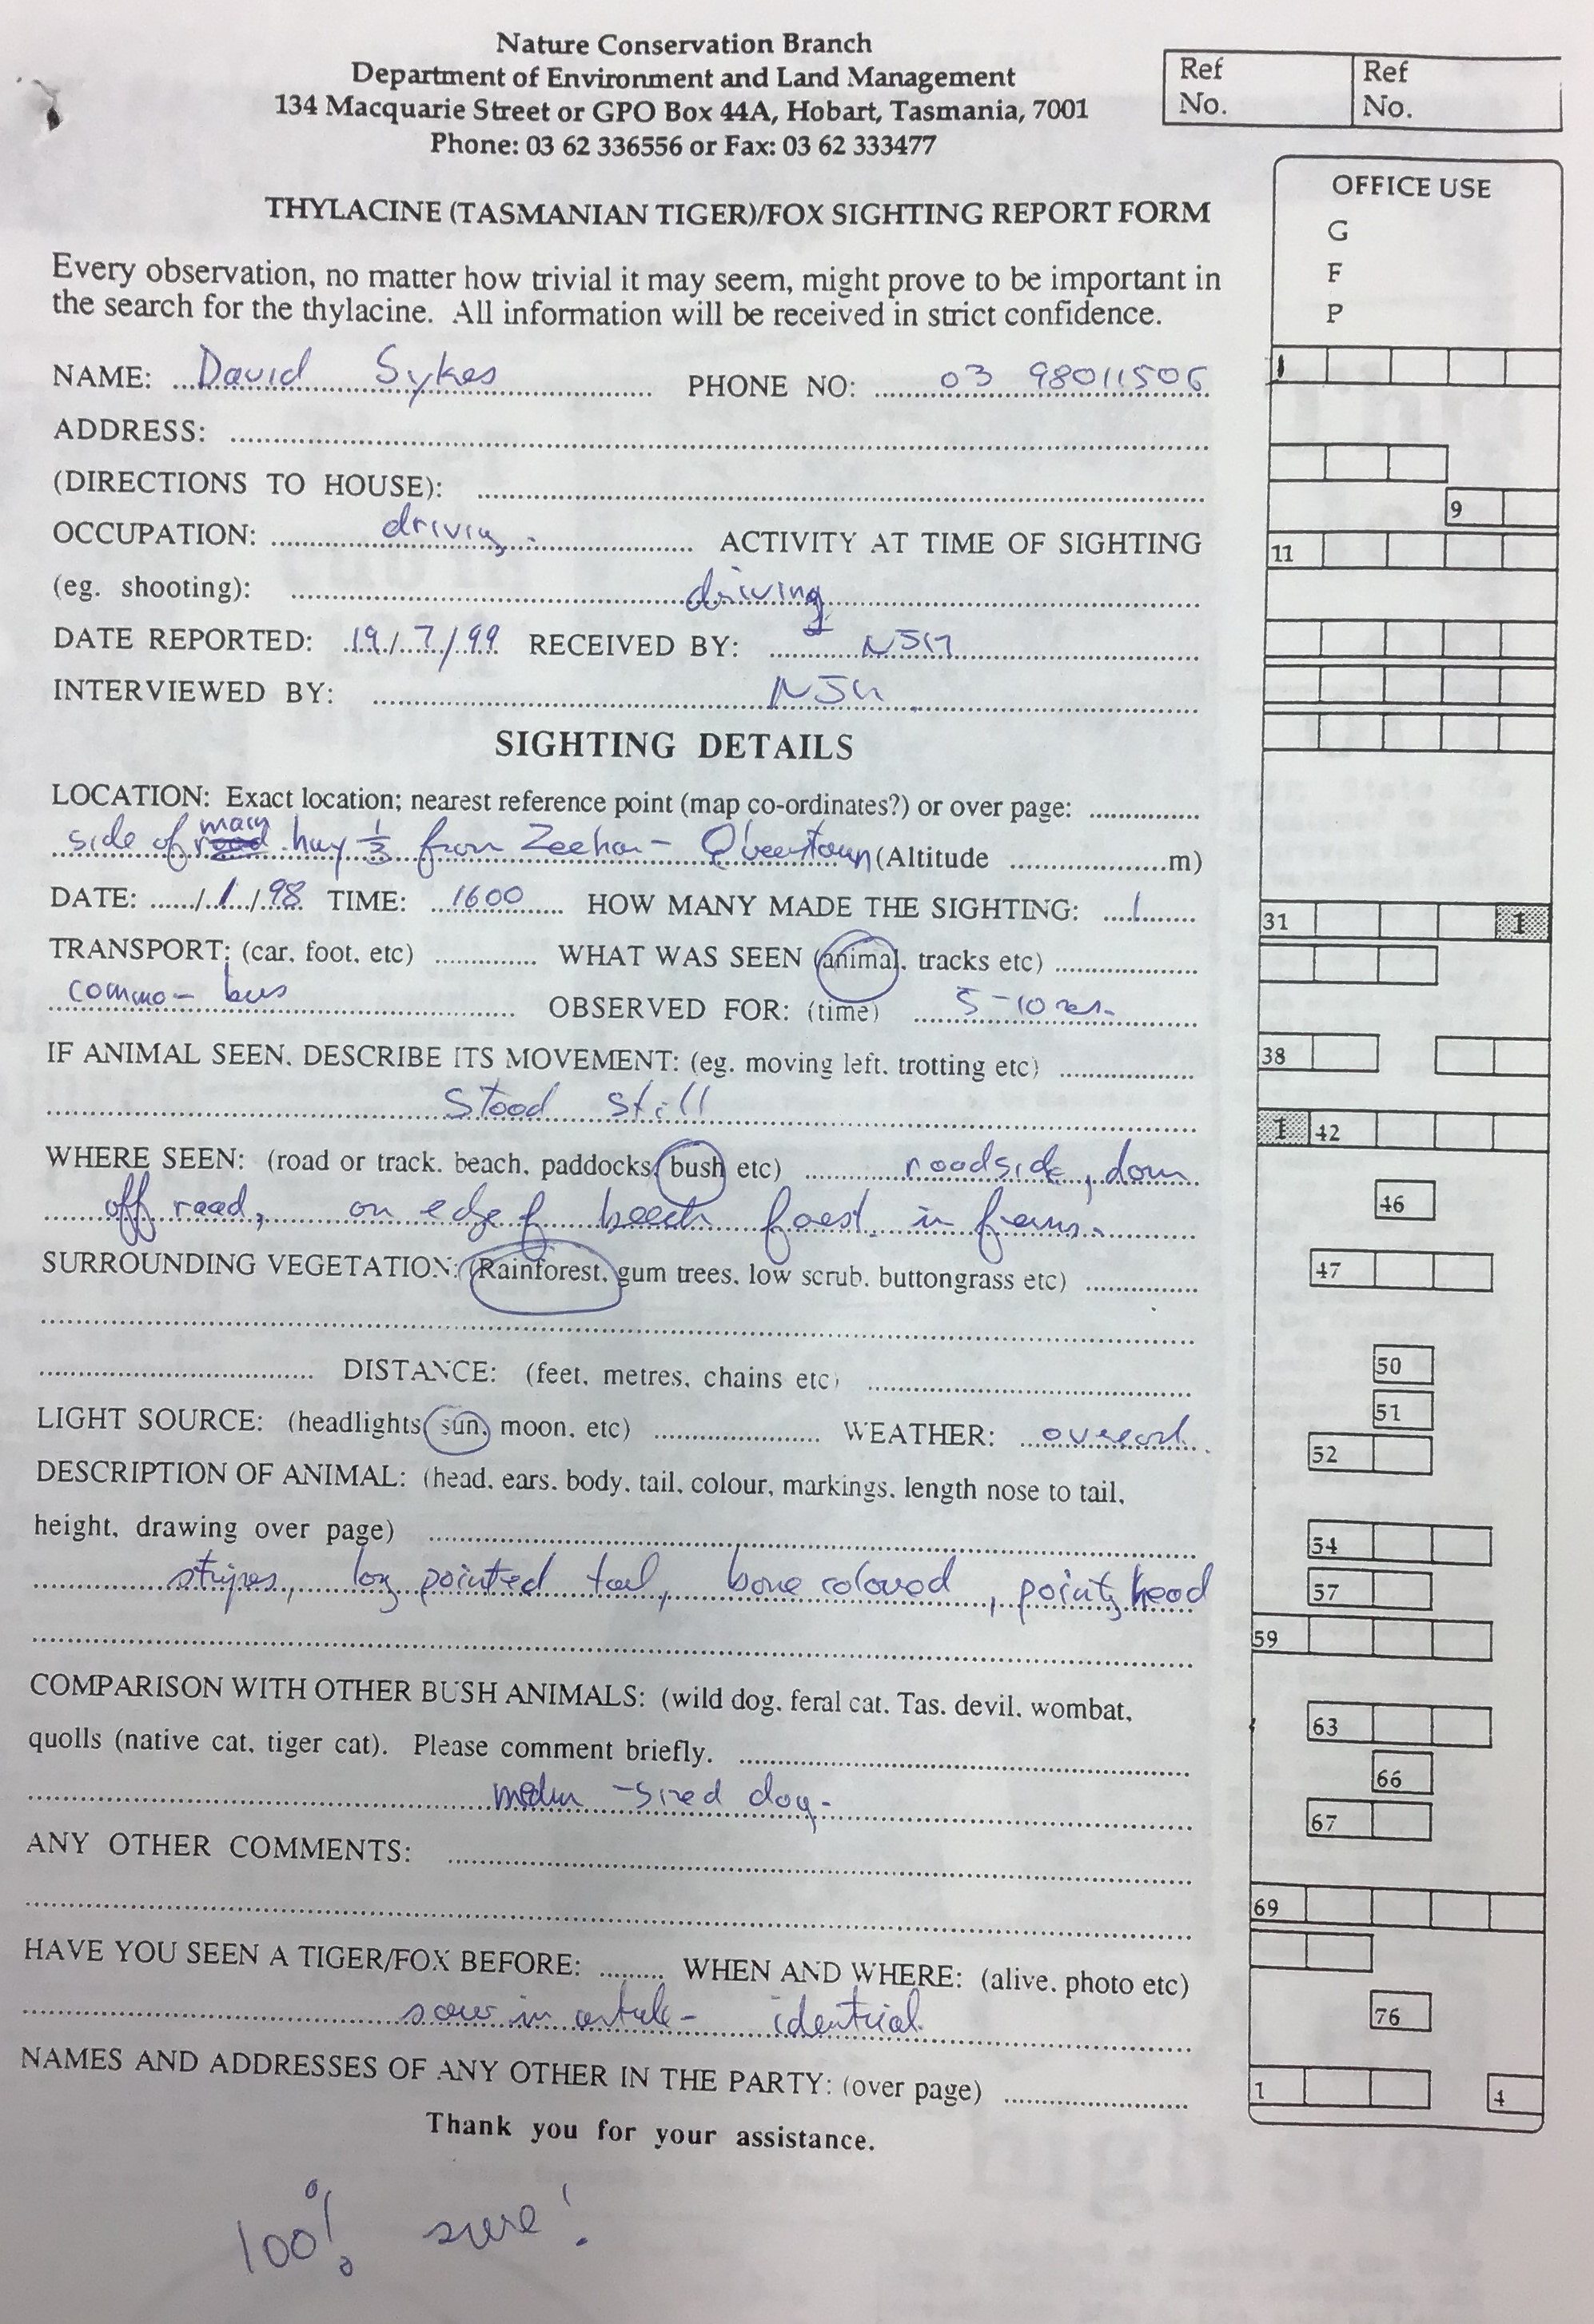 Nature Conservation Branch
Department of Environment and Land Management
134 Macquarie Street or GPO Box 44A, Hobart, Tasmania, 7001
Phone: 03 62 336556 or Fax: 03 62 333477
Ref No.
Ref No.
THYLACINE (TASMANIAN TIGER)/FOX SIGHTING REPORT FORM
Every observation, no matter how trivial it may seem, might prove to be important in
the search for the thylacine. All information will be received in strict confidence.
NAME: David Sykes PHONE NO: 03 98011506
ADDRESS:
(DIRECTIONS TO HOUSE):
OCCUPATION: driving ACTIVITY AT TIME OF SIGHTING
(eg. shooting): driving
DATE REPORTED: 19/7/99 RECEIVED BY:
INTERVIEWED BY:
SIGHTING DETAILS
LOCATION: Exact location; nearest reference point (map co-ordinates?) or over page:
side of main hwy 1/3 from Zeehan - Queenstown (Altitude m)
DATE: / 1 / 98 TIME: 1600 HOW MANY MADE THE SIGHTING: 1
TRANSPORT: (car, foot, etc) WHAT WAS SEEN (animal, tracks etc)
bus OBSERVED FOR: (time) 5-10
IF ANIMAL SEEN, DESCRIBE ITS MOVEMENT: (eg. moving left, trotting etc)
Stood still
WHERE SEEN: (road or track, beach, paddocks, bush etc) roadside, down
off road, on edge of beech forest in ferns.
SURROUNDING VEGETATION: (Rainforest, gum trees, low scrub, buttongrass etc)
DISTANCE: (feet, metres, chains etc)
LIGHT SOURCE: (headlights, sun, moon, etc) WEATHER: overcast.
DESCRIPTION OF ANIMAL: (head, ears, body, tail, colour, markings, length nose to tail,
height, drawing over page)
stripes, long pointed tail, bone coloured, pointy head
COMPARISON WITH OTHER BUSH ANIMALS: (wild dog, feral cat, Tas. devil, wombat,
quolls (native cat, tiger cat). Please comment briefly.
medium-sized dog.
ANY OTHER COMMENTS:
HAVE YOU SEEN A TIGER/FOX BEFORE: WHEN AND WHERE: (alive, photo etc)
saw in article - identical.
NAMES AND ADDRESSES OF ANY OTHER IN THE PARTY: (over page)
Thank you for your assistance.
100% sure!
OFFICE USE
G
F
P
1
9
11
31
1
38
1
42
46
47
50
51
52
54
57
59
63
66
67
69
76
1
4